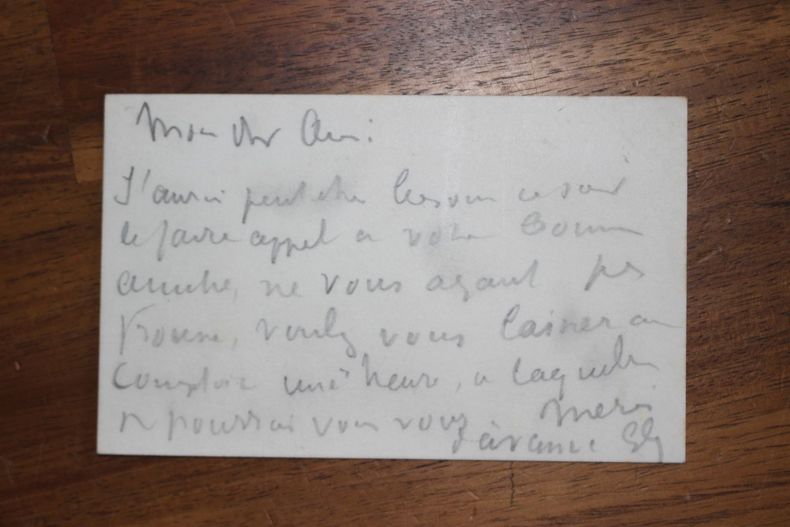 Mon cher Ami:
J'aurai peut etre besoin ce soir
de faire appel a votre bonne
amitié, ne vous ayant pas
trouvé, voulez vous laisser au
Comptoir une heure, a laquelle
je pourrai vous voir Merci
d'avance